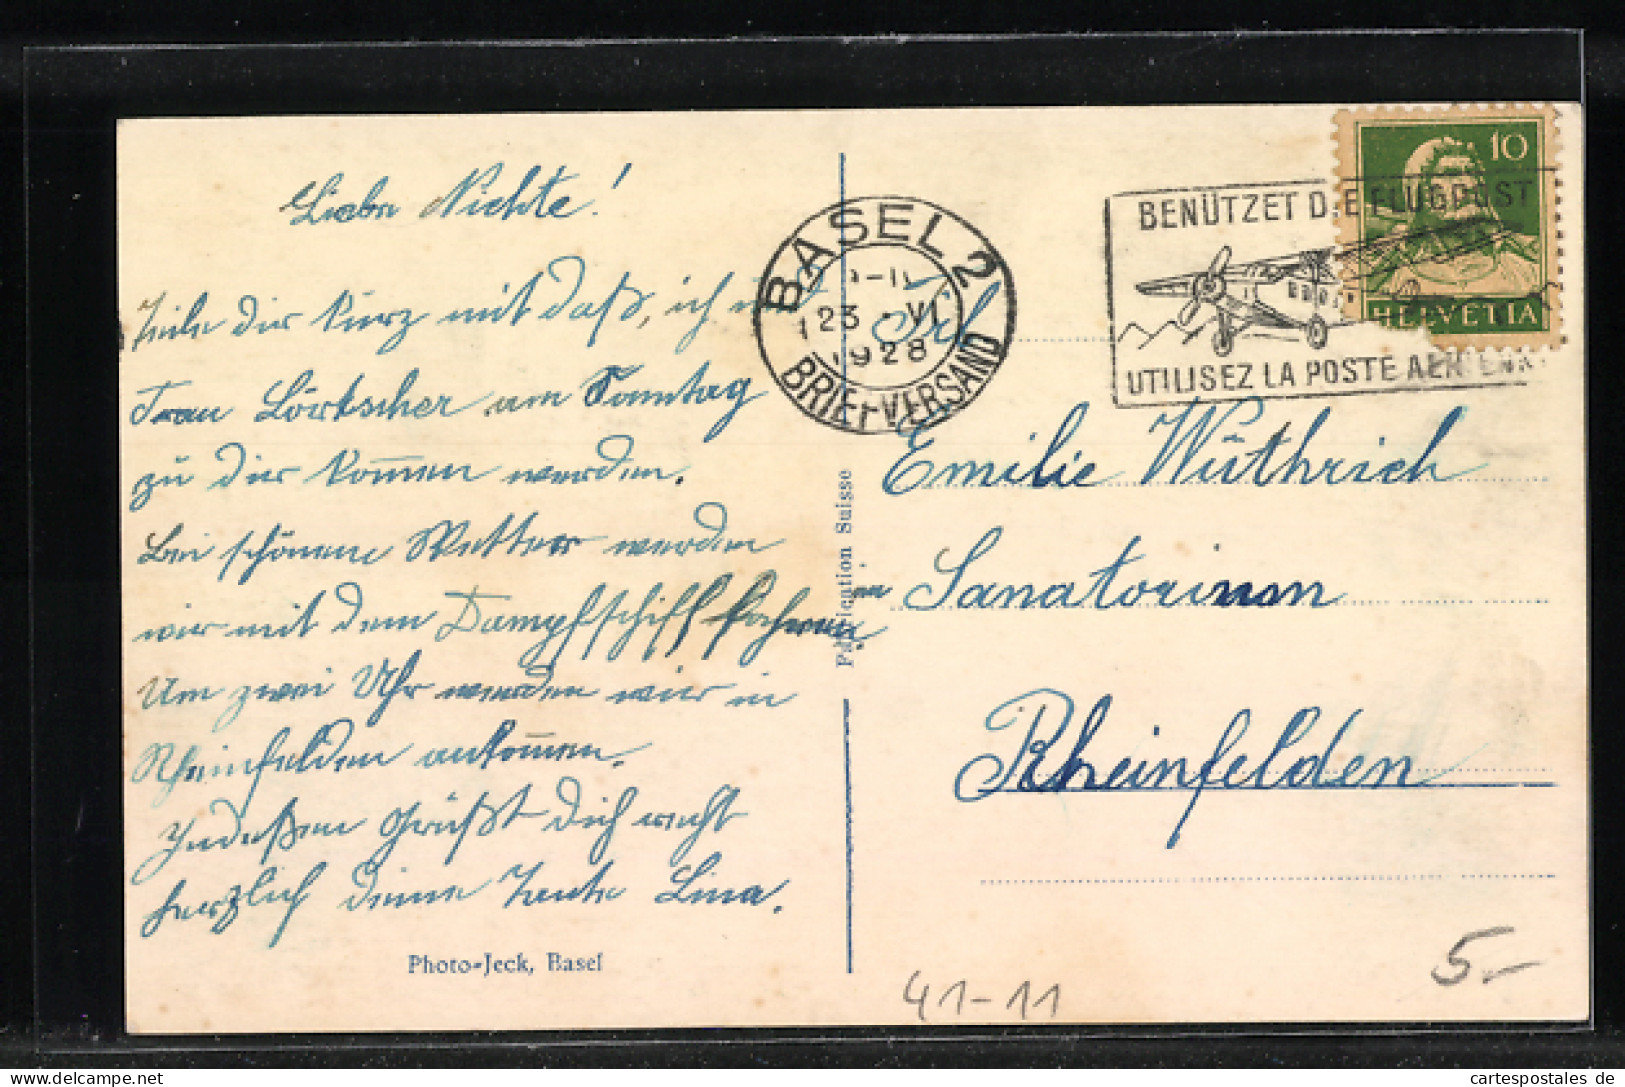 Liebe Nichte!
Teile dir kurz mit daß, ich u
Frau Lörtscher am Sonntag
zu dir kom̄en werden.
Bei schönem Wetter werden
wir mit dem Dampfschiff fahren,
Um zwei Uhr werden wir in
Rheinfelden ankom̄en.
Indeßen Grüßt dich recht
herzlich deine Tante Lina.
Photo-Jeck, Basel
BASEL 2
23. VI
1928
BRIEFVERSAND
BENÜTZET DIE FLUGPOST
UTILISEZ LA POSTE AERIENNE
10
HELVETIA
Frl.
Emilie Wüthrich
in Sanatorium
Rheinfelden
Publication Suisse
41-11
5.-
cartespostales de